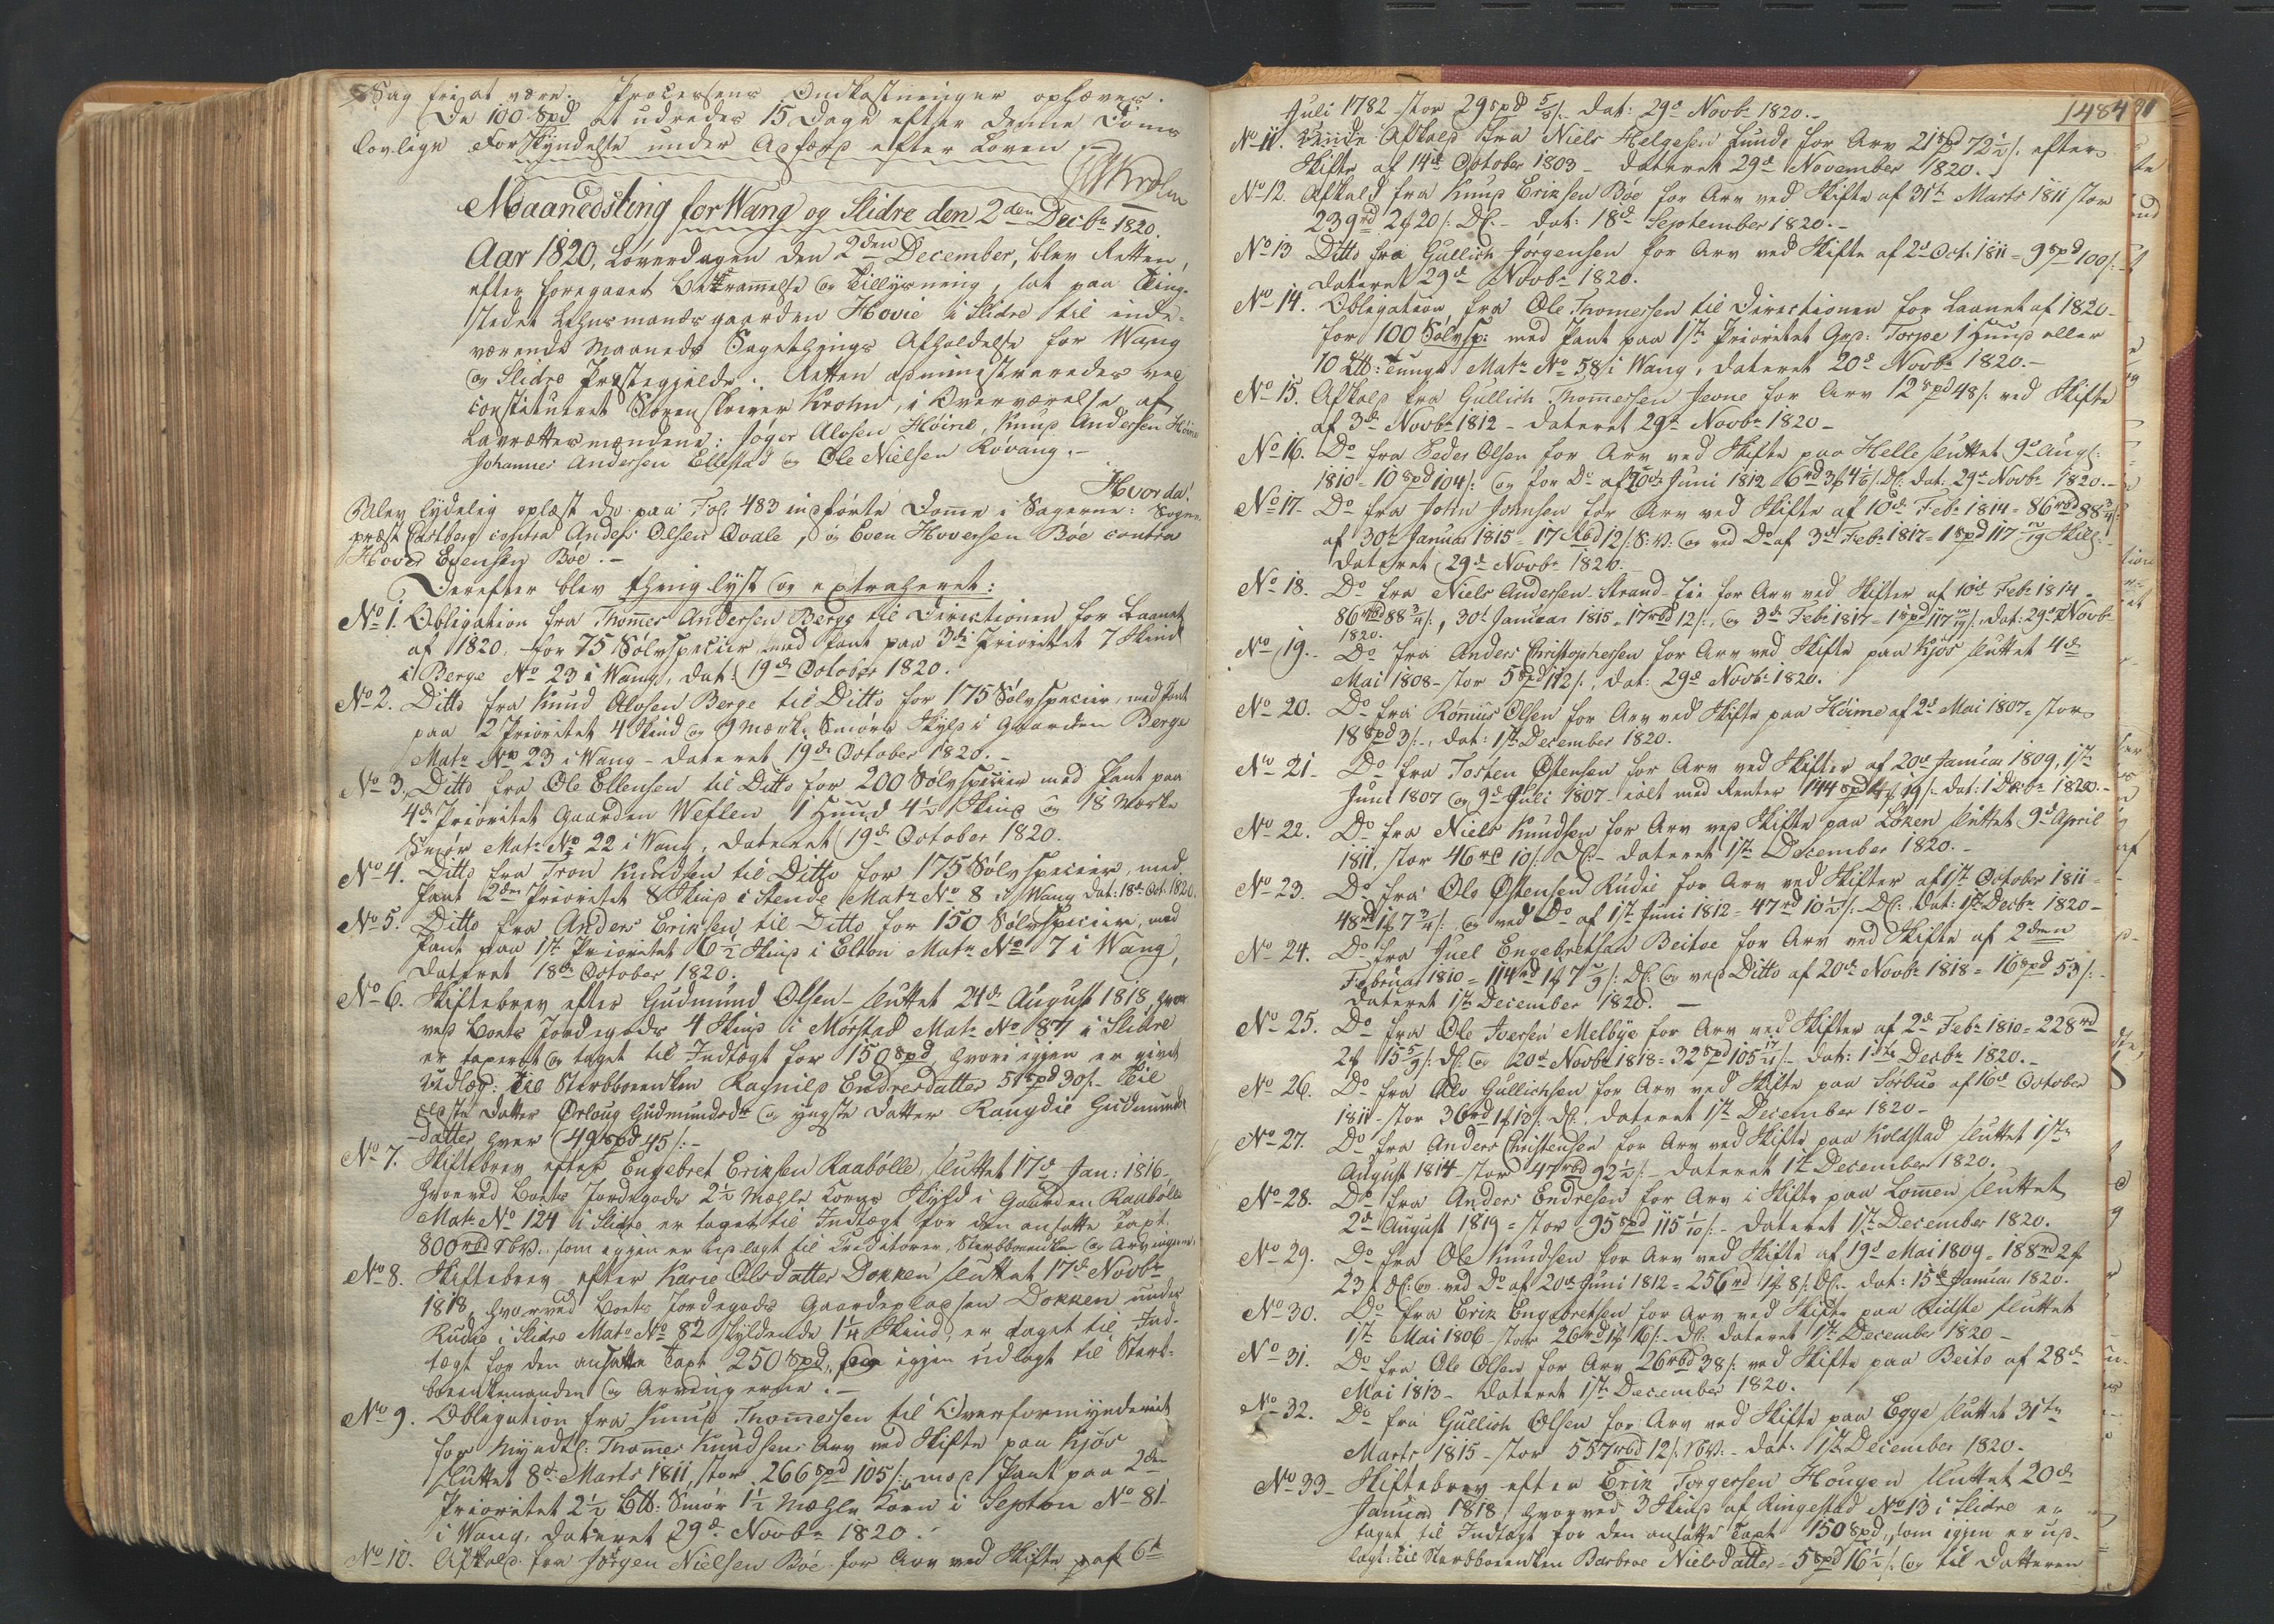 Sag frie at være. Processens Omkostninger ophæves.
De 100 Spd at udredes 15 Dage efter denne Doms
lovlige Forkyndelse under Adfærd efter Loven.
Krohn
Maanedsting for Wang og Slidre den 2den Decbr 1820.
Aar 1820, Löverdagen den 2den December, blev Retten,
efter foregaaet Berammelse og Tillysning, sat paa Ting-
stedet Lehnsmandsgaarden Hovie i Slidre til inde-
værende Maaneds Sagethings Afholdelse for Wang
og Slidre Præstegjelde. Retten administreredes ved
constitueret Sorenskriver Krohn, i Overværelse af
Laurettesmændene: Jöger Alvsen Höine, Knud Andersen Höine
Johannes Andersen Ellestad og Ole Nielsen Rövang.-
Hvorda!
Blev lydelig oplæst de paa Fol: 483 indförte Domme i Sagerne: Sogne-
præst Castberg contra Anders Olsen Qvale, og Even Hoversen Böe contra
Hover Evensen Böe.-
Derefter blev thinglyst og extraheret:
No 1. Obligation fra Thommes Andersen Berge til Directionen for Laanet
af 1820, for 75 Sölvspecier, med Pant paa 3de Prioritet 7 Skind
i Berge No 23 i Wang, dat: 19de October 1820.
No 2. Ditto fra Knud Alvsen Berge til Ditto for 175 Sölvspecier, med Pant
paa 2 Prioritet 4 Skind og 9 Mærke Smörs Skyld i Gaarden Berge
Matr No 23 i Wang - dateret 19de October 1820.-
No 3. Ditto fra Ole Ellensen til Ditto for 200 Sölvspecier med Pant paa
4de Prioritet Gaarden Weflen 1 Hund 4½ Skind og 18 Mærke
Smör Matr No 22 i Wang, dateret 19de October 1820.
No 4. Ditto fra Tron Knudsen til Ditto for 175 Sölvspecier, med
Pant 2den Prioritet 8 Skind i Stende Matr No 8 i Wang dat: 18de Oct: 1820.
No 5. Ditto fra Anders Eriksen til Ditto for 150 Sölvspecier, med
Pant paa 1ste Prioritet 6½ Skind i Elton Matr No 7 i Wang,
dateret 18de October 1820.
No 6. Skiftebrev efter Gudmund Olsen - sluttet 24de August 1818, hvor
ved Boets Jordegods 4 Skind i Mörstad Matr No 87 i Slidre
er taxeret og taget til Indtægt for 150 Spd, hvori igjen er givet
Udlæg: til Sterbboenken Ragnild Endresdatter 51 Spd 30 s.- til
ældste Datter Örloug Gudmundsdr og yngste Datter Rangdie Gudmunds
-datter hver 49 Spd 45 s.-
No 7. Skiftebrev efter Engebret Eriksen Raabölle, sluttet 17de Jan: 1816-
hvorved Boets Jordegods 2½ Mæhle Korns Skyld i Gaarden Raabölle
Matr No 124 i Slidre er taget til Indtægt for den ansatte Taxt
800 rbd NV., som igjen er udlagt til Creditorer, Sterbboenken og Arvingerne.
No 8. Skiftebrev efter Karie Olsdatter Dokken sluttet 17de Novbr
1818, hvorved Boets Jordegods Gaardepladsen Dokken under
Rudie i Slidre Matr No 82 skyldende 1¼ Skind, er taget til Ind-
tægt for den ansatte Taxt 250 Spd, som igjen udlagt til Sterb-
boenkemanden og Arvingerne.-
No 9. Obligation fra Knud Thommesen til Overformynderiet
for Myndtl: Thommes Knudsens Arv ved Skifte paa Kjös
sluttet 8de Marts 1811, stor 266 Spd 105 s., mod Pant paa 2den
Prioritet 2½ Ltb: Smör 1½ Mæhle Korn i Septon No 81
i Wang, dateret 29de Novbr 1820.
No 10. Afkald fra Jörgen Nielsen Böe for Arv ved Skifte af 6te
1484
Juli 1782 stor 29 Spd 5/8 s.- dat: 29de Novbr 1820.-
No 11. Afkald fra Niels Helgesen Lunde for Arv 21 Spd 72½ s. efter
Skifte af 14de October 1803 - dateret 29de November 1820.-
No 12. Afkald fra Knud Eriksen Böe for Arv ved Skifte af 31te Marts 1811 stor
239 rd 2 # 20 s. DC.- dat: 18de September 1820.-
No 13 Ditto fra Gullich Jörgensen for Arv ved Skifte af 2de Oct: 1811 = 9 Spd 100 s.-
dateret 29de Novbr 1820.
No 14. Obligation fra Ole Thomesen til Directionen for Laanet af 1820-
for 100 Sölvsp: med Pant paa 1ste Prioritet Grd: Torpe 1 Hund eller
10 Ltb: Tunge Matr No 58 i Wang, dateret 20de Novbr 1820.-
No 15. Afkald fra Gullich Thommesen Jevne for Arv 12 Spd 48 s. ved Skifte
af 3de Novbr 1812 - dateret 29de Novbr 1820-
No 16. Do fra Peder Olsen for Arv ved Skifte paa Helle sluttet 9de Aug:
1810 - 10 Spd 104 s: og for Do af 20de Juni 1812 6 rd 3 # 4 1/6 s. DC: dat: 29de Novbr 1820.-
No 17- Do fra John Johnsen for Arv ved Skifte af 10de Febr 1814 = 86 rbd 88¾ s.
af 30te Januar 1815 = 17 Rbd 12 s. S:V: og ved Do af 3de Febr 1817 = 1 Spd 117 Skill:
dateret 29de Novbr 1820.
No 18. Do fra Niels Andersen Strand-Eie for Arv ved Skifter af 10de Febr 1814-
86 rbd 88¾ s., 30te Januar 1815 = 17 rbd 12 s., og 3de Febr 1817 - 1 Spd 117 s., dat: 29de Novbr
1820.
No 19.- Do fra Anders Christophersen for Arv ved Skifte paa Kjös sluttet 4de
Mai 1808 - stor 5 Spd 112 s., dat: 29de Novbr 1820.
No 20. Do fra Romius Olsen for Arv ved Skifte paa Höime af 2de Mai 1807 = stor
18 Spd 3 s.-, dat: 1ste December 1820.
No 21- Do fra Torsten Östensen for Arv ved Skifter af 20de Januar 1809, 1ste
Juni 1807 og 9de Juli 1807 - ialt med Renter 144 Spd 19 s.- dat: 1 Decbr 1820.-
No 22. Do fra Niels Knudsen for Arv ved Skifte paa Löken sluttet 9de April
1811, stor 46 rd 10 s: DC.- dateret 1ste December 1820.-
No 23. Do fra Ole Östensen Rudie for Arv ved Skifter af 1ste October 1811 =
48 rd 1 # 7¾ s. og ved Do af 1ste Juni 1812 = 47 rd 10½ s.- DC: dat: 1ste Decbr 1820-
No 24. Do fra Juel Engebretsen Beitoe for Arv ved Skifte af 2den
Februar 1810 = 114 rd 1 # 7 s: DC. og ved Ditto af 20de Novbr 1818 = 16 Spd 53 s:-
dateret 1ste December 1820.-
No 25. Do fra Ole Iversen Melbye for Arv ved Skifter af 2de Febr 1810 = 228 rd
2 # 15 5/9 s: DC. og 20de Novbr 1818 = 32 Spd 105 s.- dat: 1ste Decbr 1820.-
No 26. Do fra Ole Gullichsen for Arv ved Skifte paa Sörbue af 16de October
1811 - stor 36 rd 1 # 13 s. DC., dateret 1ste December 1820-
No 27. Do fra Anders Christensen for Arv ved Skifte paa Koldstad sluttet 1ste
August 1814 - stor 47 rbd 92½ s.- dateret 1ste December 1820.
No 28. Do fra Anders Endresen for Arv i Skifte paa Lommen sluttet
2de August 1819 = stor 95 Spd 115 1/10 s.- dateret 1ste December 1820.
No 29. Do fra Ole Knudsen for Arv ved Skifte af 19de Mai 1809 = 188 rd 2 #
23 s DC: og ved Do af 20de Juni 1812 = 256 rd 1 # 8 s. DC.- dat: 15de Januar 1820.
No 30. Do fra Erik Engebretsen for Arv ved Skifte paa Ridste sluttet
1ste Mai 1806 - stor 26 rd 1 # 16 s.- DC. dateret 1ste December 1820-
No 31. Do fra Ole Olsen for Arv 26 rbd 38 s: ved Skifte paa Beito af 28de
Mai 1813 - dateret 1ste December 1820.
No 32. Do fra Gullich Olsen for Arv ved Skifte paa Egge sluttet 31te
Marts 1815 - stor 557 rbd 12 s. NV.- dat: 1ste December 1820.
No 33- Skiftebrev efter Erik Torgersen Hougen sluttet 20de
Januar 1818, hvorved 3 Skind af Ringestad No 13 i Slidre er
taget til Indtægt for den ansatte Taxt 150 Spd, som igjen er ud-
lagt: til Sterbboenken Barbroe Nielsdatter = 5 Spd 16½ s. og til Datteren